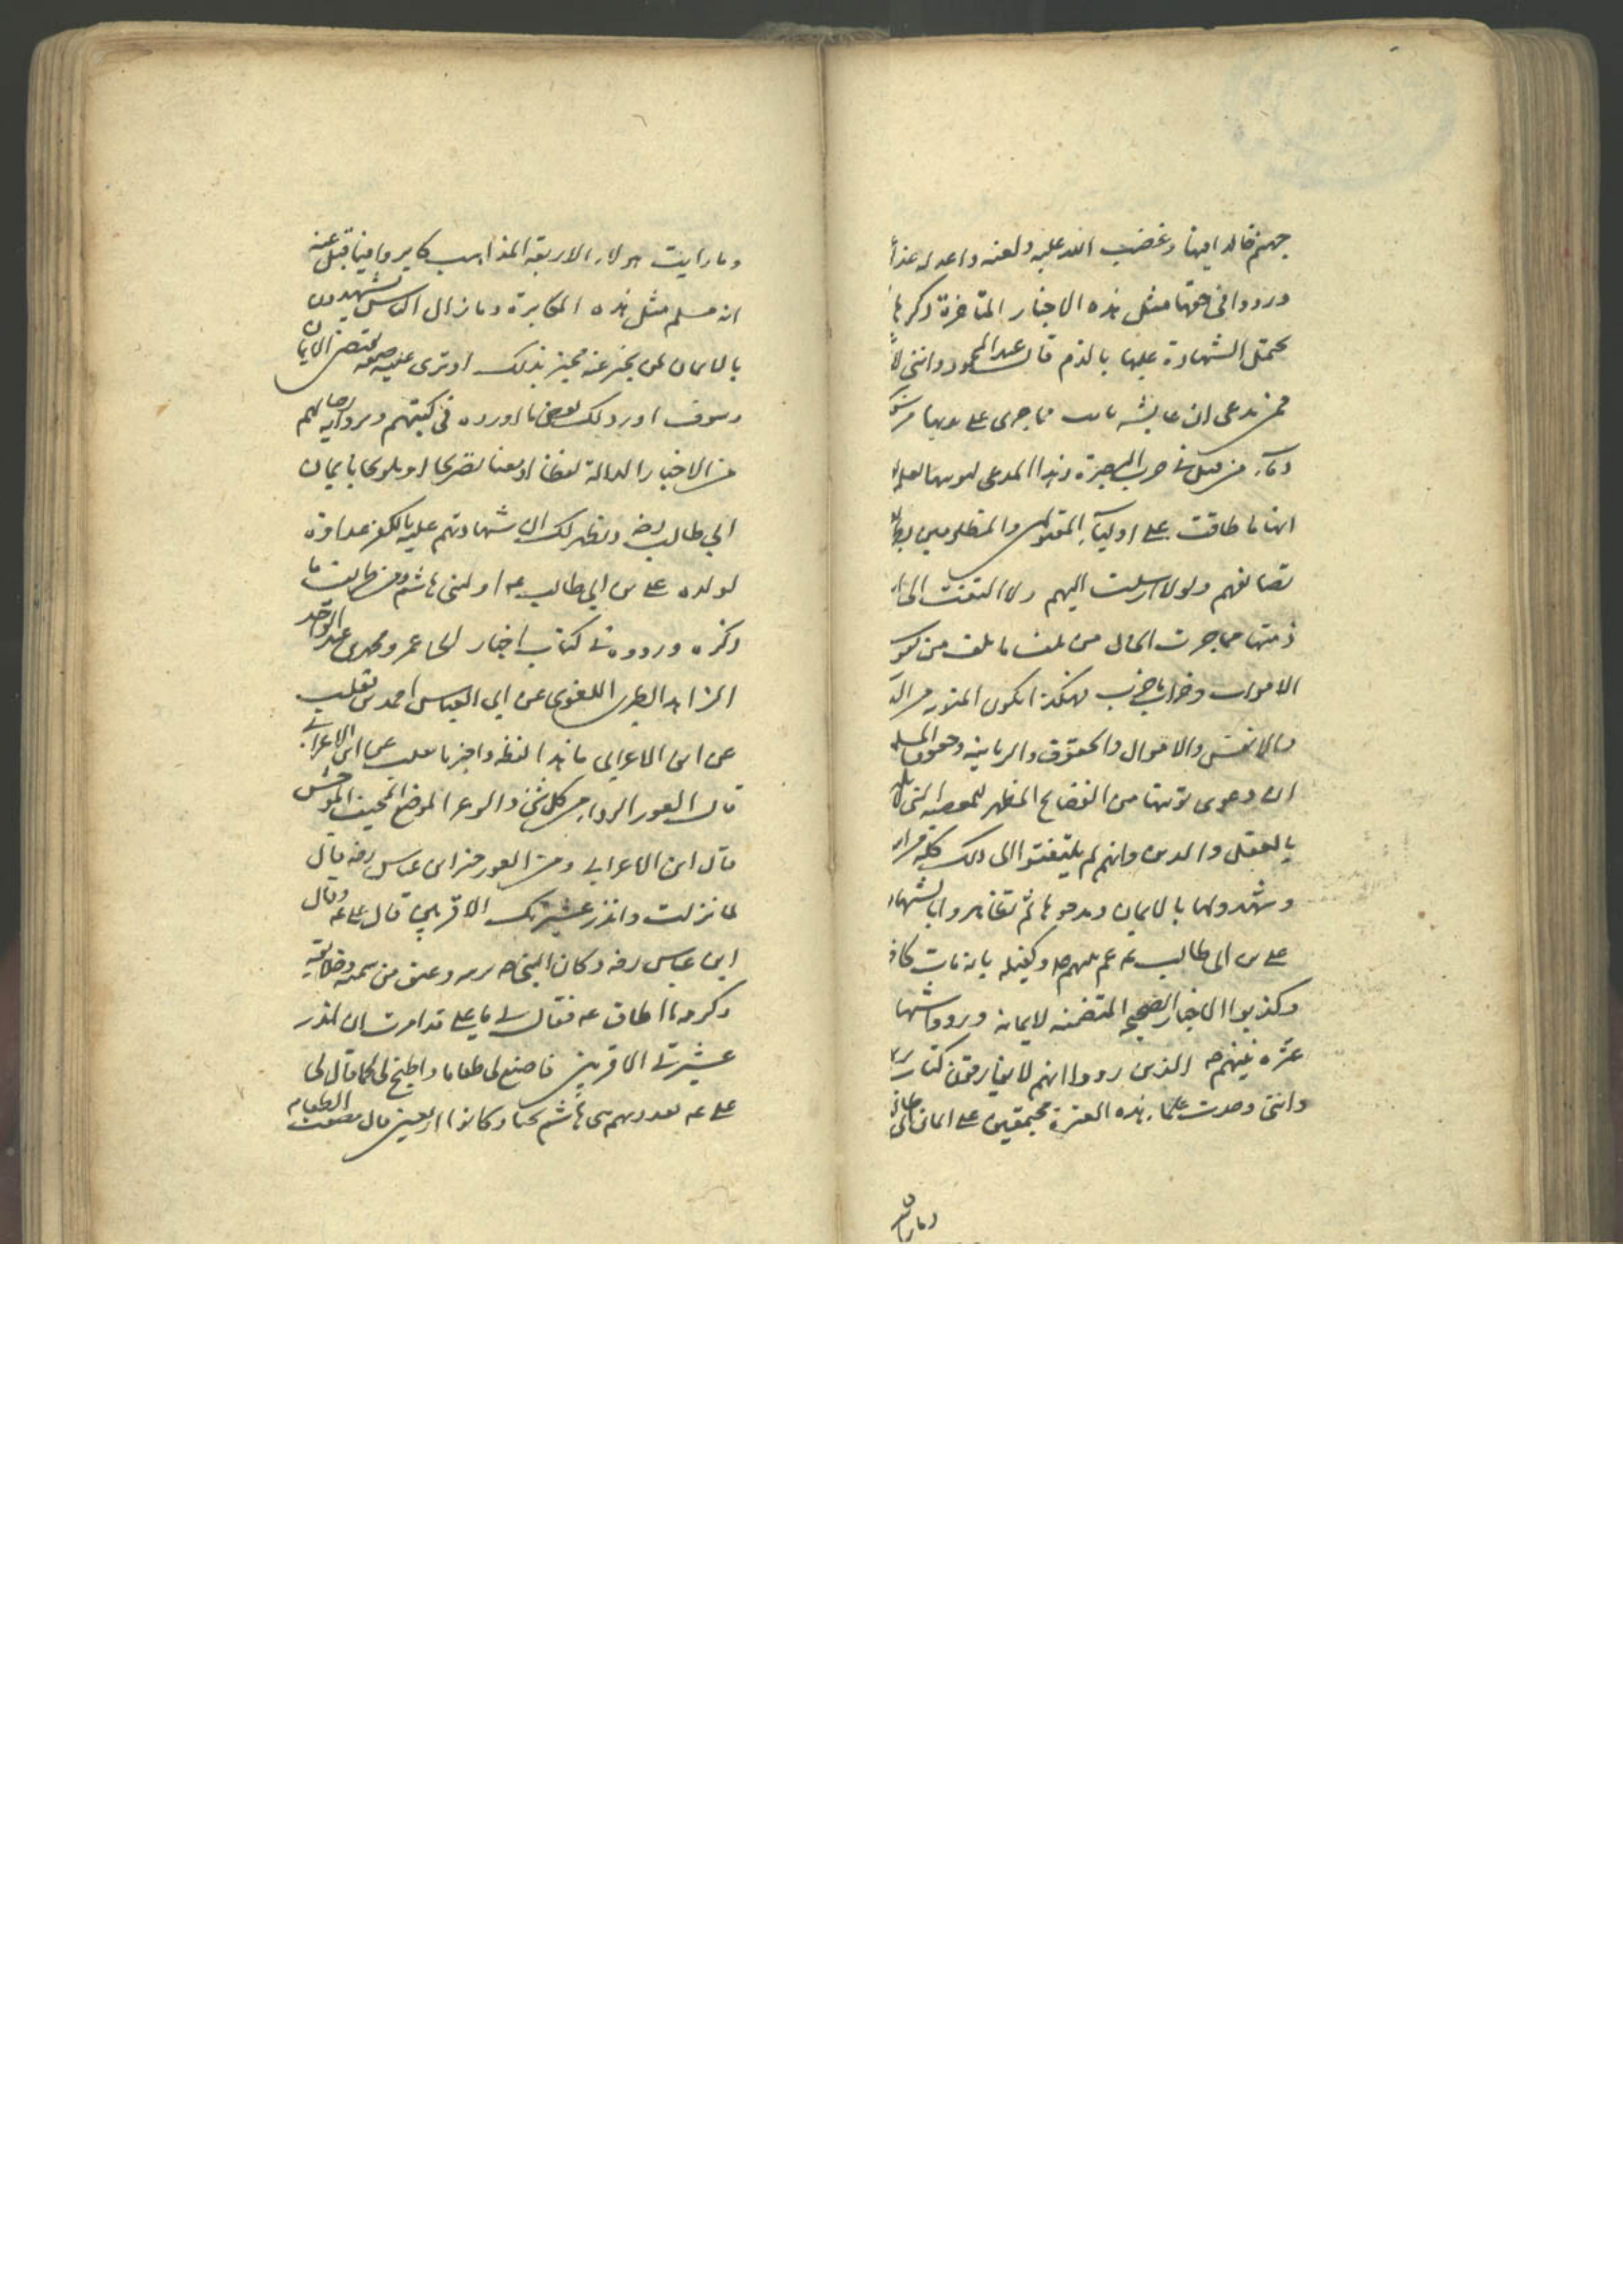 جهنم خالدا فيها وغضب الله عليه ولعنه واعد له عذابا
ورووا في حقها مثل هذه الاخبار المتاخرة ذكرها
يحتمل الشهادة عليها بالذم قال عبد المحمود وانني لا
ممن يدعي ان عايشه تابت مما جرى على يديها من سفك
دماء من قتل في حرب البصرة وهذا المدعي لتوبتها يعلم
انها ما طاقت على اولياء المقتولين والمظلومين
تضايقهم ولا ارسلت اليهم ولا التفتت الى
ذمتها مما جرت الحال من تلف ما تلف من
الاموات وخراب ما خرب فهكذا يكون التوبه من
والانفس والاموال والحقوق والربانيه وحقوق المسلمين
ان دعوى توبتها من الفضايح المظهر للعصبيه التي
بالعقل والدين وانهم لم يلتفتوا الى ذلك كله
وشهدوا لها بالايمان ومدحوها ثم تظاهروا بالشهادة
على ابي طالب عم نبيهم وكفيله بانه مات كافرا
وكذبوا الاخبار الصحيحه المتضمنه لايمانه وردوا شهادة
عترة نبيهم ص الذين رووا انهم لا يفارقون كتاب ربهم
وانني وجدت علماء هذه العترة مجتمعين على ايمان ابي طالب
وما رايت
وما رايت هولاء الاربعة المذاهب كابروا فيما قبل عنه
انه مسلم مثل هذه المكابرة وما زال الناس يشهدون
بالايمان لمن يخبر عنه مخبر بذلك او ترى عليه صفه تقتضي الايمان
وسوف اورد لك بعض ما اورده في كتبهم وبرواية رجالهم
من الاخبار الدالة لفظا او معنا تصريحا او تلويحا بايمان
ابي طالب رض ويظهر لك ان شهادتهم عليه بالكفر عداوة
لولده علي بن ابي طالب ع او لبني هاشم ومن طرايف ما
ذكره ورووه في كتاب اخبار ابي عمرو محمد بن عبد الواحد
الزاهد الطبري اللغوي عن ابي العباس احمد بن ثعلب
عن ابن الاعرابي ما هذا لفظه واخبرنا ثعلب عن ابن الاعرابي
قال العور الردي من كل شئ والوعر الموضع المخيف الموحش
قال ابن الاعرابي ومن العور خبر ابن عباس رض قال
لما نزلت وانذر عشيرتك الاقربين قال علي ع وقال
ابن عباس رض وكان النبي ص يربيه وعبق من سمته وخلايقه
وكرمه ما اطاق ع فقال لي يا علي قد امرت ان انذر
عشيرتي الاقربين فاصنع لي طعاما واطبخ لي لحما قال لي
علي ع فعددتهم بني هاشم بحتا وكانوا اربعين قال فصنعت الطعام